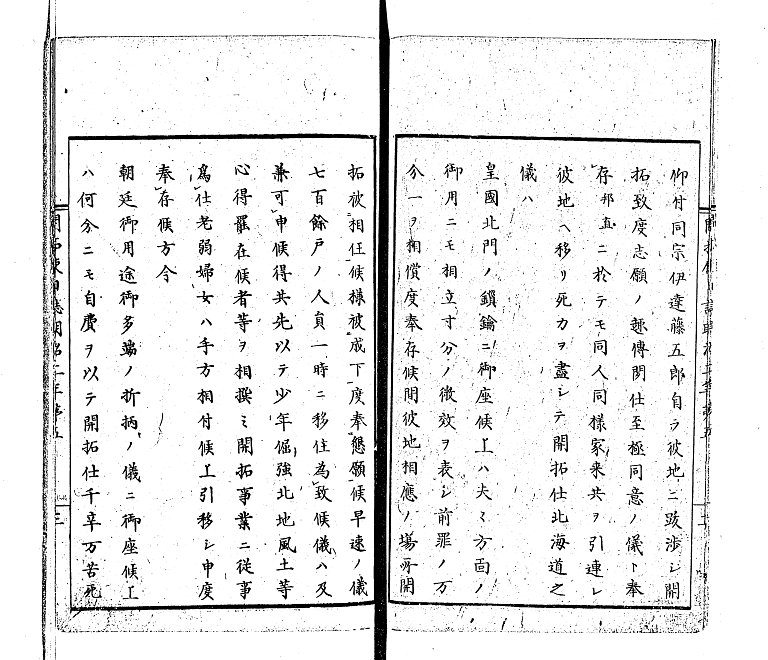 仰付同宗伊達藤五郎自ラ彼地ニ跋渉シ開
拓致度志願ノ趣傳聞仕至極同意ノ儀ト奉
存邦直ニ於テモ同人同様家来共ヲ引連レ
彼地ヘ移リ死力ヲ盡シテ開拓仕北海道之
儀ハ
皇國北門ノ鎖鑰ニ御座候上ハ夫々方面ノ
御用ニモ相立寸分ノ微效ヲ表シ前罪ノ万
分一ヲ相償度奉存候間彼地相應ノ場所開
拓被相任候様被成下度奉懇願候早速ノ儀
七百餘戸ノ人員一時ニ移住為致候儀ハ及
兼可申候得共先以テ少年倔強北地風土等
心得罷在候者等ヲ相撰ミ開拓事業ニ従事
為仕老弱婦女ハ手方相付候上引移シ申度
奉存候方今
朝廷御用途御多端ノ折柄ノ儀ニ御座候上
ハ何分ニモ自費ヲ以テ開拓仕千辛万苦死